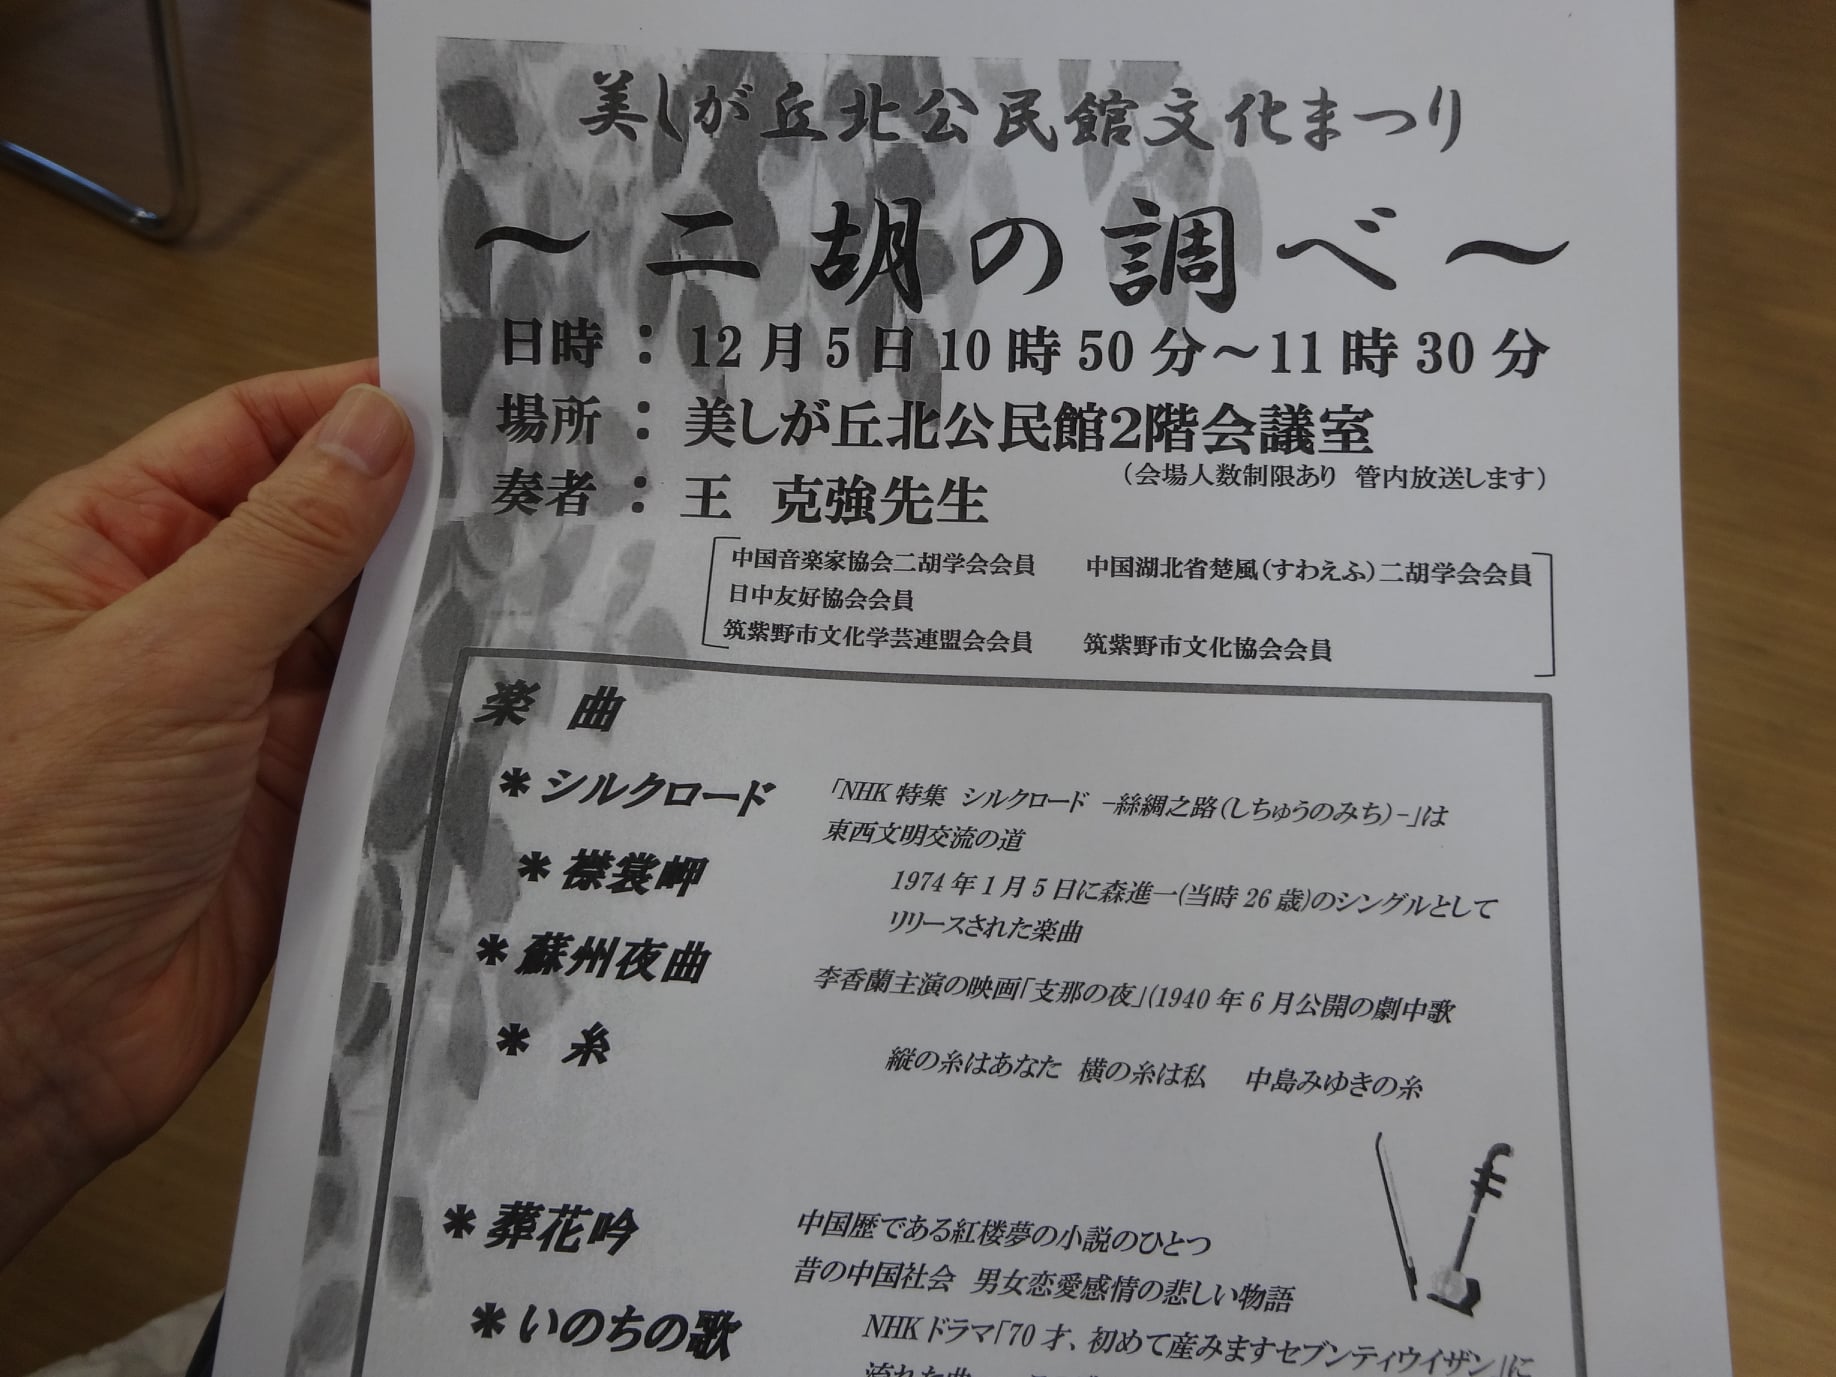 美しが丘北公民館文化まつり
～二胡の調べ～
日時：12月5日10時50分～11時30分
場所：美しが丘北公民館2階会議室
（会場人数制限あり 管内放送します）
奏者：王 克強先生
中国音楽家協会二胡学会会員 中国湖北省楚風（すわえふ）二胡学会会員
日中友好協会会員
筑紫野市文化学芸連盟会会員 筑紫野市文化協会会員
楽 曲
＊シルクロード 「NHK特集 シルクロード -絲綢之路（しちゅうのみち）-」は
東西文明交流の道
＊襟裳岬 1974年1月5日に森進一(当時26歳)のシングルとして
リリースされた楽曲
＊蘇州夜曲 李香蘭主演の映画「支那の夜」(1940年6月公開の劇中歌
＊糸 縦の糸はあなた 横の糸は私 中島みゆきの糸
＊葬花吟 中国歴である紅楼夢の小説のひとつ
昔の中国社会 男女恋愛感情の悲しい物語
＊いのちの歌 NHKドラマ「70才、初めて産みますセブンティウイザン」に
流れた曲